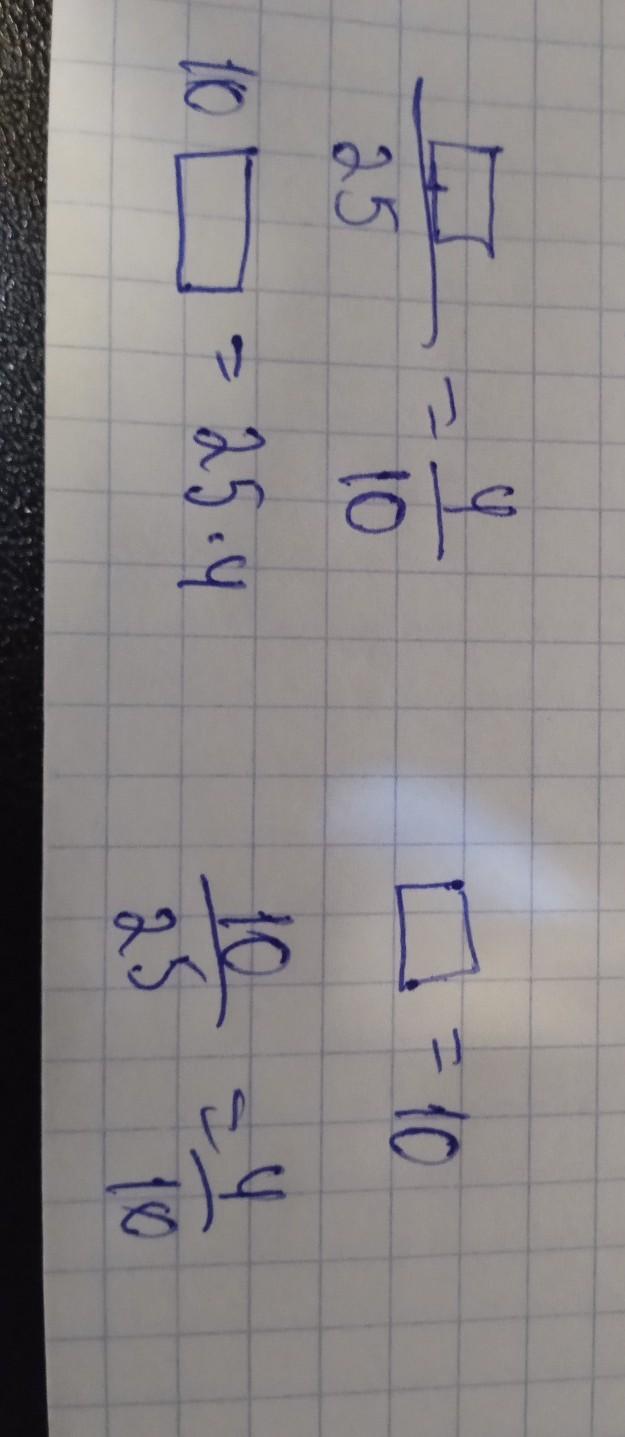 □/25 = 4/10
10 □ = 25 · 4
□ = 10
10/25 = 4/10